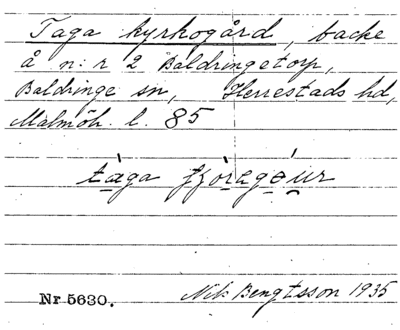 Taga kyrkogård, backe
å n:r 2 Baldringetorp,
Baldringe sn, Herrestads hd,
Malmöh. l. 85
tàga
Nr 5630. Nils Bengtsson 1935